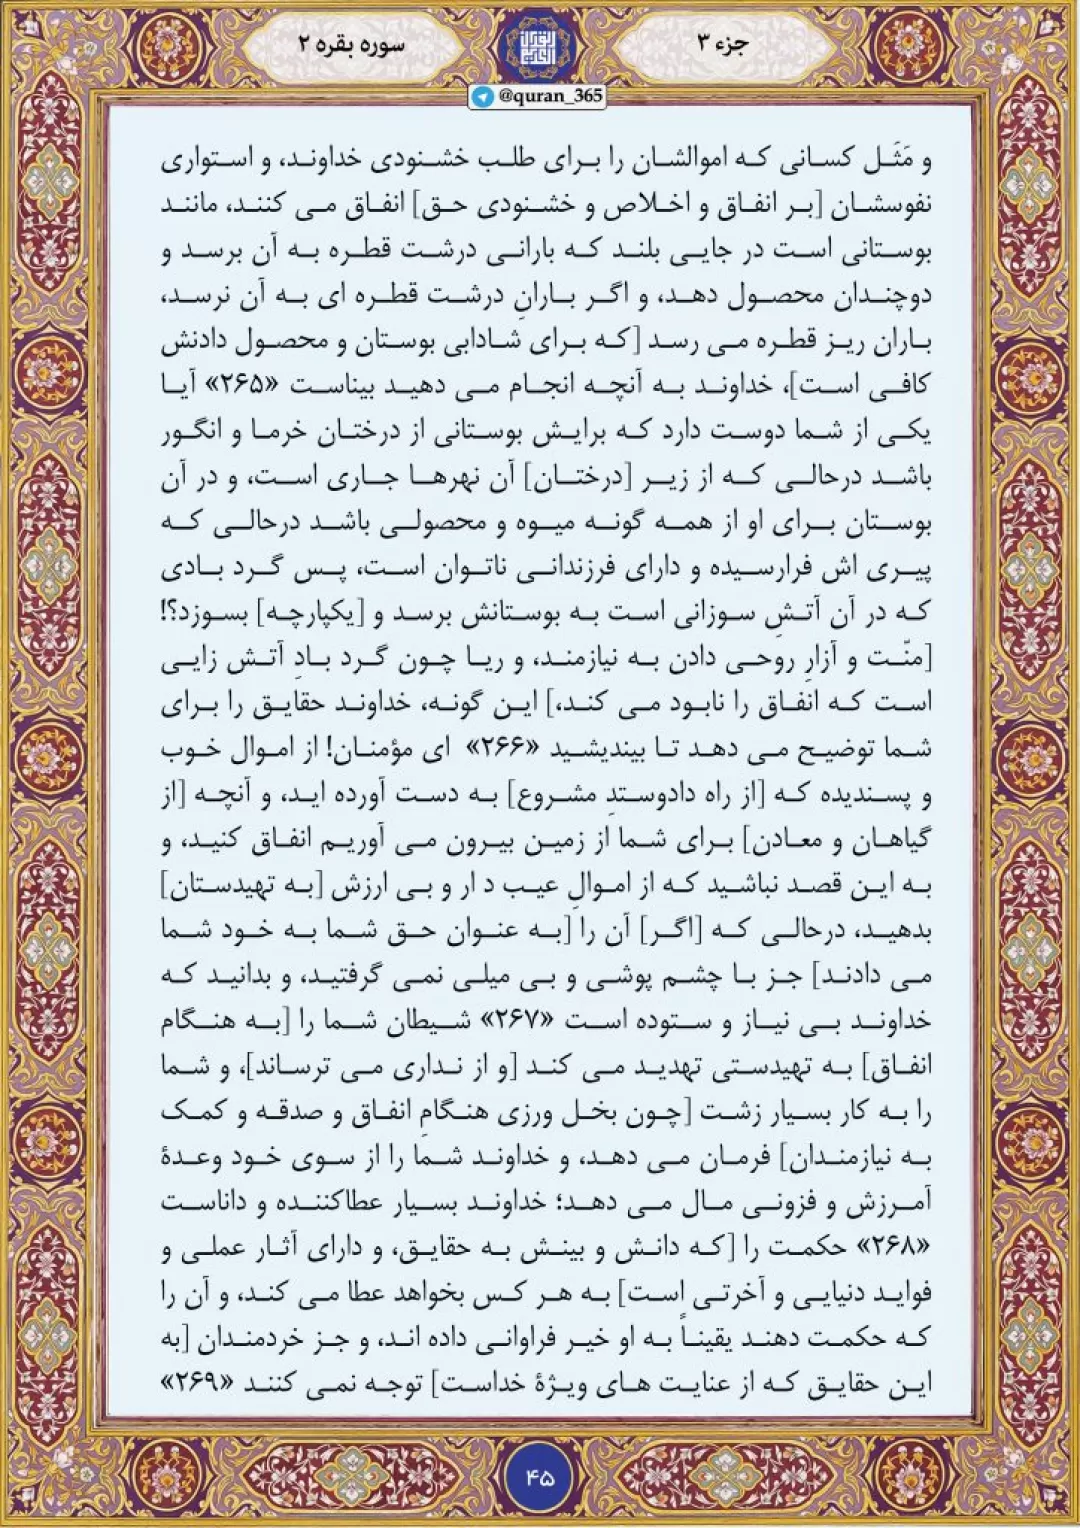 جزء ۳
سوره بقره ۲
@quran_365
و مَثَل کسانی که اموالشان را برای طلب خشنودی خداوند، و استواری
نفوسشان [بر انفاق و اخلاص و خشنودی حق] انفاق می کنند، مانند
بوستانی است در جایی بلند که بارانی درشت قطره به آن برسد و
دوچندان محصول دهد، و اگر بارانِ درشت قطره ای به آن نرسد،
باران ریز قطره می رسد [که برای شادابی بوستان و محصول دادنش
کافی است]، خداوند به آنچه انجام می دهید بیناست «۲۶۵» آیا
یکی از شما دوست دارد که برایش بوستانی از درختان خرما و انگور
باشد درحالی که از زیر [درختان] آن نهرها جاری است، و در آن
بوستان برای او از همه گونه میوه و محصولی باشد درحالی که
پیری اش فرارسیده و دارای فرزندانی ناتوان است، پس گرد بادی
که در آن آتشِ سوزانی است به بوستانش برسد و [یکپارچه] بسوزد؟!
[منّت و آزارِ روحی دادن به نیازمند، و ریا چون گرد بادِ آتش زایی
است که انفاق را نابود می کند،] این گونه، خداوند حقایق را برای
شما توضیح می دهد تا بیندیشید «۲۶۶» ای مؤمنان! از اموال خوب
و پسندیده که [از راه دادوستدِ مشروع] به دست آورده اید، و آنچه [از
گیاهان و معادن] برای شما از زمین بیرون می آوریم انفاق کنید، و
به این قصد نباشید که از اموالِ عیب د ار و بی ارزش [به تهیدستان]
بدهید، درحالی که [اگر] آن را [به عنوان حق شما به خود شما
می دادند] جز با چشم پوشی و بی میلی نمی گرفتید، و بدانید که
خداوند بی نیاز و ستوده است «۲۶۷» شیطان شما را [به هنگام
انفاق] به تهیدستی تهدید می کند [و از نداری می ترساند]، و شما
را به کار بسیار زشت [چون بخل ورزی هنگامِ انفاق و صدقه و کمک
به نیازمندان] فرمان می دهد، و خداوند شما را از سوی خود وعدهٔ
آمرزش و فزونی مال می دهد؛ خداوند بسیار عطاکننده و داناست
«۲۶۸» حکمت را [که دانش و بینش به حقایق، و دارای آثار عملی و
فواید دنیایی و آخرتی است] به هر کس بخواهد عطا می کند، و آن را
که حکمت دهند یقیناً به او خیر فراوانی داده اند، و جز خردمندان [به
این حقایق که از عنایت های ویژهٔ خداست] توجه نمی کنند «۲۶۹»
۴۵